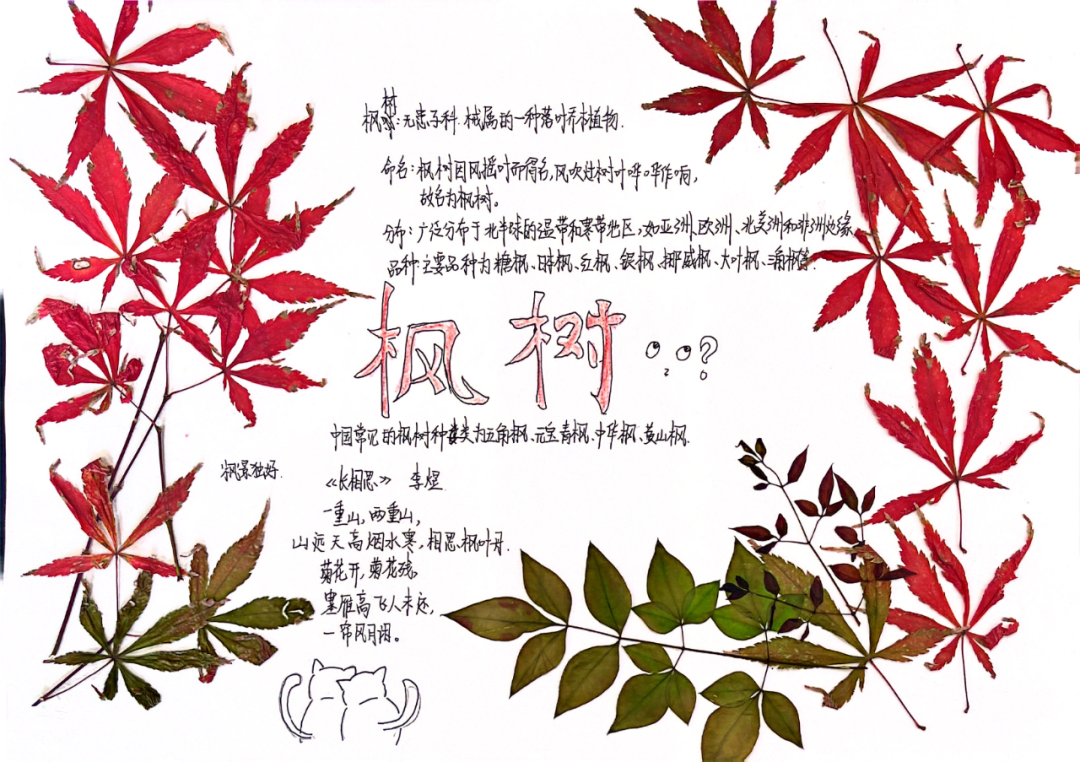 枫树:无患子科.槭属的一种落叶乔木植物.
命名:枫树因风摇叶而得名,风吹过树叶哗哗作响,
故名为枫树。
分布:广泛分布于北半球的温带和寒带地区,如亚洲、欧洲、北美洲和非洲边缘.
品种:主要品种为糖枫、日本枫、红枫、银枫、挪威枫、大叶枫、三角枫等.
枫树..?
中国常见的枫树种类为五角枫、元宝青枫、中华枫、黄山枫.
枫景独好.
《长相思》 李煜
一重山,两重山,
山远天高烟水寒,相思枫叶丹.
菊花开,菊花残,
塞雁高飞人未还,
一帘风月闲。